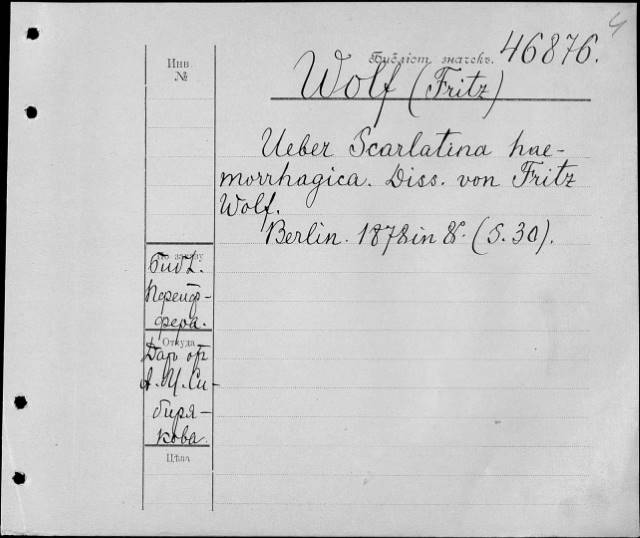 4
Инв.
№
Библіот. значекъ. 46876.
Wolf (Fritz)
Ueber Scarlatina hae-
morrhagica. Diss. von Fritz
Wolf.
Berlin. 1878 in 8°. (S. 30).
По заказу
Библ.
Пфейф-
фера.
Откуда
Даръ отъ
А. М. Си-
биря-
кова.
Цѣна